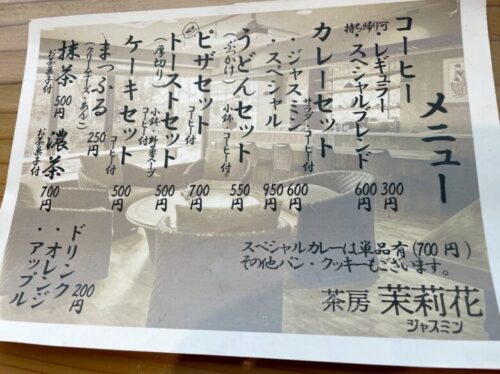 メニュー
コーヒー
持ち帰り可
・レギュラー 300円
・スペシャルブレンド 600円
カレーセット
サラダ・コーヒー付
・ジャスミン 600円
・スペシャル 950円
うどんセット 550円
(ぶっかけ) 小鉢・コーヒー付
ピザセット 700円
コーヒー付
トーストセット 500円
(厚切り) 小鉢・野菜スープ
コーヒー付
ケーキセット 500円
コーヒー付
まっふる 250円
(クリームチーズ・あんこ)
抹茶 500円
お茶菓子付
濃茶 700円
お茶菓子付
ドリンク 200円
・オレンジ
・アップル
スペシャルカレーは単品有(700円)
その他パン・クッキーもございます。
茶房 茉莉花
ジャスミン